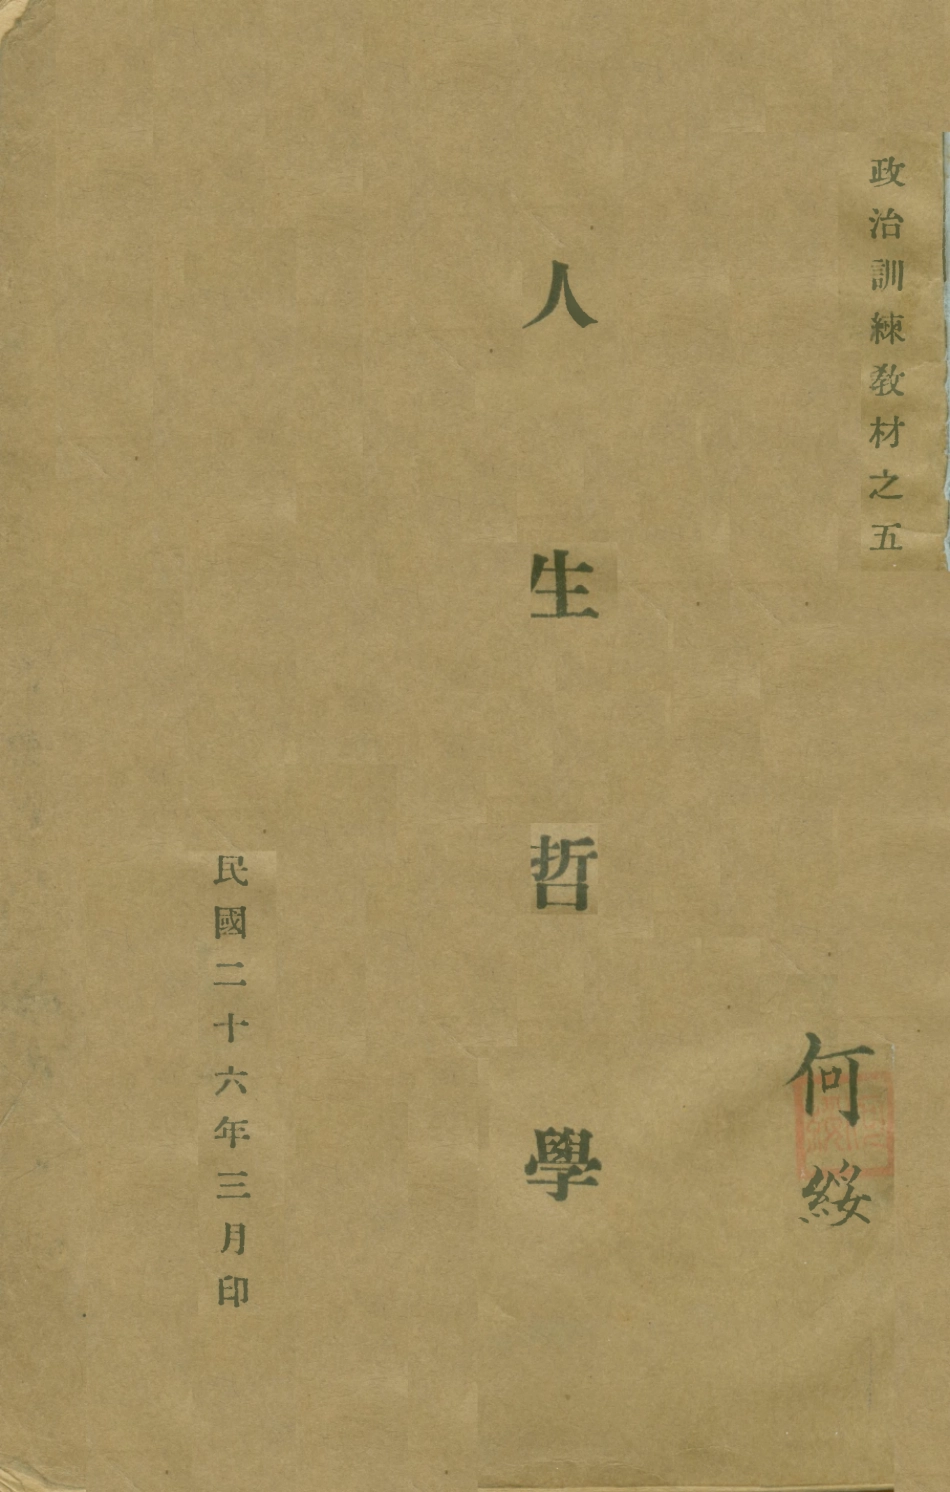 政治訓練教材之五
何綏
人生哲學
民國二十六年三月印